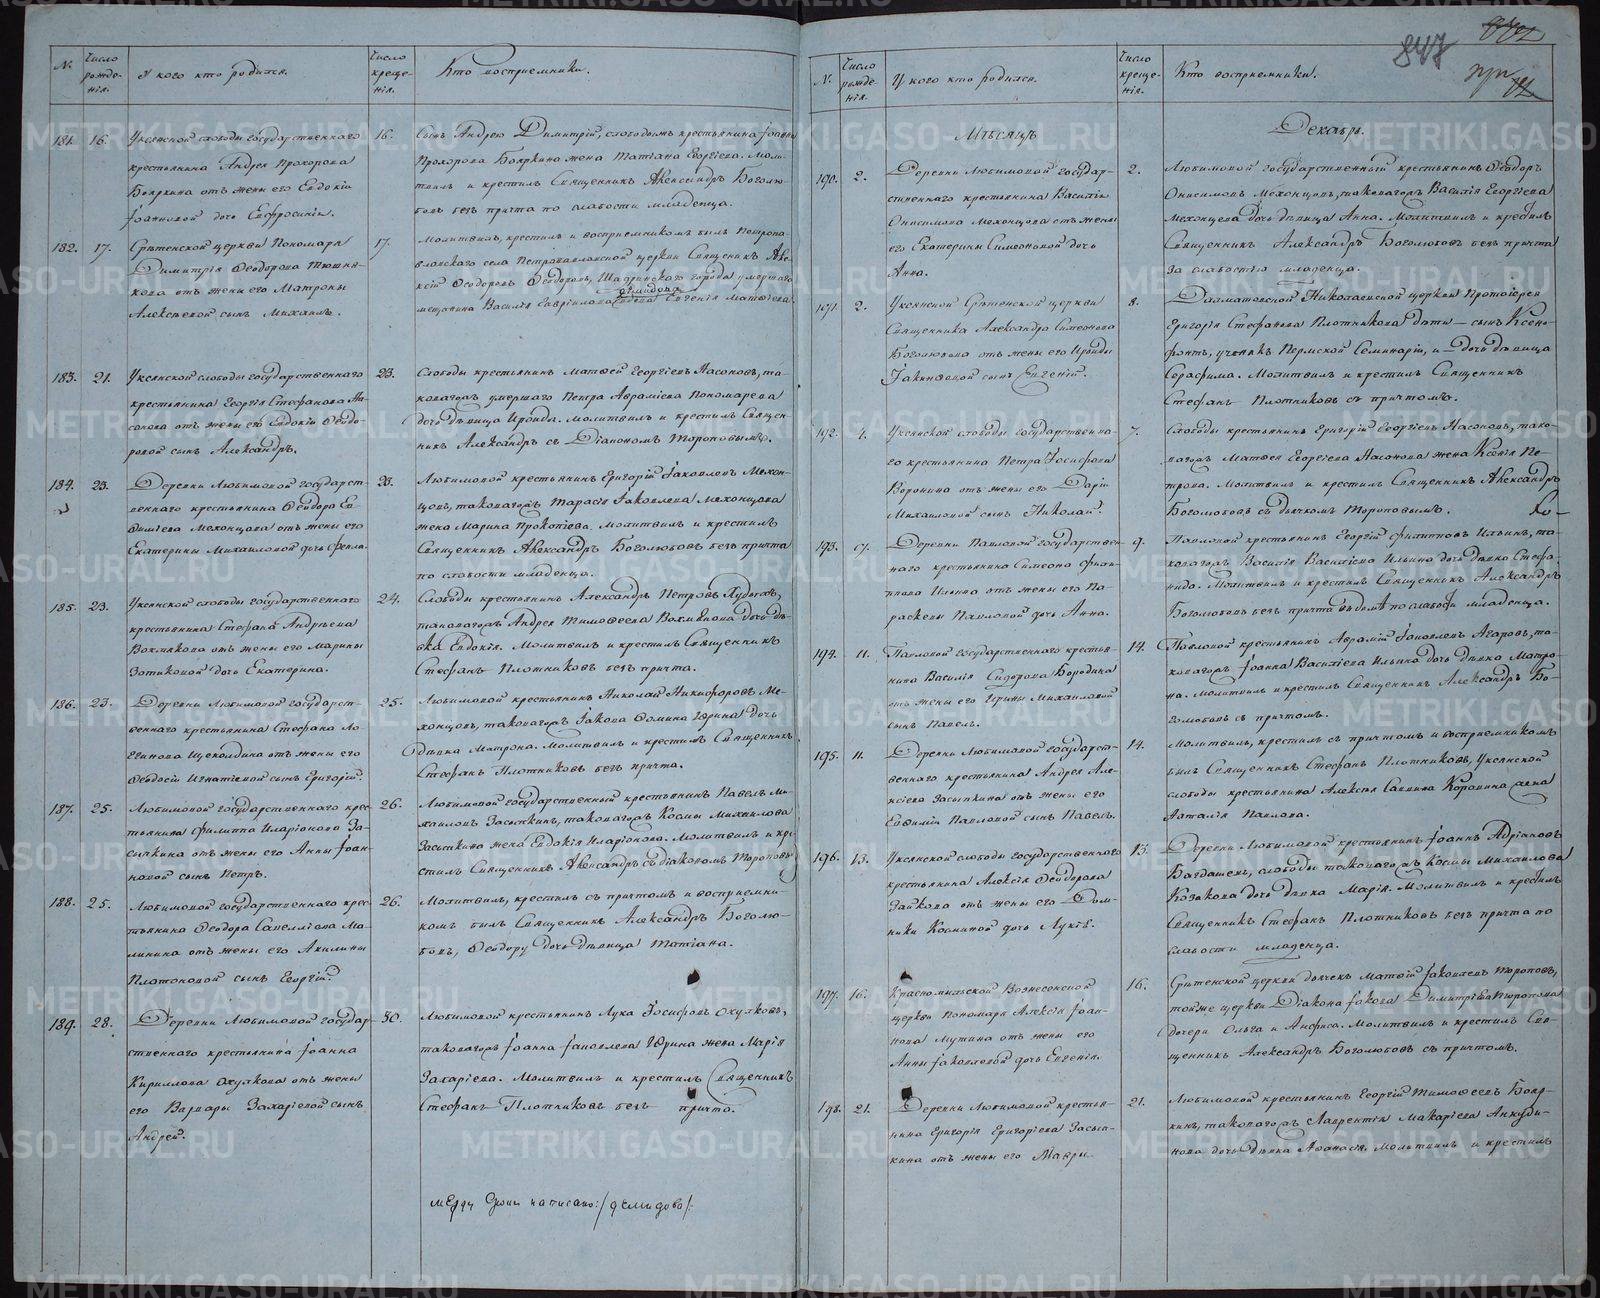 №.
Число рожде-нія.
У кого кто родился.
Число креще-нія.
Кто восприемники.
181.
16.
Уксянской слободы государственнаго
крестьянина Андрея Прохорова
Бояркина отъ жены его Евдокіи
Іоанновой дочь Евфросинія.
16.
Сынъ Андрею Димитрій, слободымъ крестьянина Іоанна
Прохорова Бояркина жена Татіана Георгіева. Моли-
твилъ и крестилъ Священникъ Александръ Боголю-
бовъ безъ причта по слабости младенца.
182.
17.
Срѣтенской церкви Пономаря
Димитрія Ѳеодорова
отъ жены его Матроны
Алексѣевой сынъ Михаилъ.
17.
Молитвилъ, крестилъ и восприемникомъ былъ Петропа-
вловскаго села Петропавловской церкви Священникъ Але-
ксій Ѳеодоровъ Ѳеодоровъ, Шадринскаго города умершаго
Демидова
мещанина Василія Гавріилова вдова Евгенія Матвѣева.
183.
21.
Уксянской слободы государственнаго
крестьянина Георгія Стефанова На-
сонова отъ жены его Евдокіи Ѳеодо-
ровой сынъ Александръ.
23.
Слободы крестьянинъ Матвей Георгіевъ Насоновъ, та-
коваго жъ умершаго Петра Авраміева Пономарева
дочь дѣвица Ираида. Молитвилъ и крестилъ Священ-
никъ Александръ съ Діакономъ Тороповымъ.
184.
23.
Деревни Любимовой государст-
веннаго крестьянина Ѳеодора Ев-
ѳиміева Мехонцова отъ жены его
Екатерины Михаиловой дочь Ѳекла.
23.
Любимовой крестьянинъ Григорій Іаковлевъ Мехон-
цовъ, таковагожъ Тарасія Іаковлева Мехонцова
жена Марина Прокопіева. Молитвилъ и крестилъ
Священникъ Александръ Боголюбовъ безъ причта
по слабости младенца.
185.
23.
Уксянской слободы государственнаго
крестьянина Стефана Андрѣева
Вохмякова отъ жены его Марины
Зотиковой дочь Екатерина.
24.
Слободы крестьянинъ Александръ Петровъ
таковагожъ Андрея Тимоѳеева Вохмякова дочь дѣ-
вка Евдокія. Молитвилъ и крестилъ Священникъ
Стефанъ Плотниковъ безъ причта.
186.
23.
Деревни Любимовой государст-
веннаго крестьянина Стефана Ло-
гинова Щеколдина отъ жены его
Ѳеодосіи Игнатіевой сынъ Григорій.
25.
Любимовой крестьянинъ Николай Никифоровъ Ме-
хонцовъ, таковагожъ Іакова Ѳомина Юрина дочь
дѣвка Матрона. Молитвилъ и крестилъ Священникъ
Стефанъ Плотниковъ безъ причта.
187.
25.
Любимовой государственнаго крес-
тьянина Филиппа Иларіонова За-
сыпкина отъ жены его Анны Іоан-
новой сынъ Петръ.
26.
Любимовой государственный крестьянинъ Павелъ Ми-
хаиловъ Засыпкинъ, таковагожъ Космы Михаилова
Засыпкина жена Евдокія Иларіонова. Молитвилъ и кре-
стилъ Священникъ Александръ съ діакономъ Тороповы
188.
25.
Любимовой государственнаго крес-
тьянина Ѳеодора Савелліева Ма-
линина отъ жены его Акилины
Платоновой сынъ Георгій.
26.
Молитвилъ, крестилъ съ причтомъ и восприемни-
комъ былъ Священникъ Александръ Боголю-
бовъ, Ѳеодору дочь дѣвица Татіана.
189.
28.
Деревни Любимовой государ-
ственнаго крестьянина Іоанна
Кириллова Охулкова отъ жены
его Варвары Захаріевой сынъ
Андрей.
30.
Любимовой крестьянинъ Лука Іосифовъ Охулковъ,
таковагожъ Іоанна Іаковлева Юрина жена Марія
Захаріева. Молитвилъ и крестилъ Священникъ
Стефанъ Плотниковъ безъ причта.
между строкъ написано:/демидова/:
847
№.
Число рожде-нія.
У кого кто родился.
Число креще-нія.
Кто восприемники.
Мѣсяцъ
Декабрь.
190.
2.
Деревни Любимовой государ-
ственнаго крестьянина Василія
Онисимова Мехонцова отъ жены
его Екатерины Симеоновой дочь
Анна.
2.
Любимовой государственный крестьянинъ Ѳеодоръ
Онисимовъ Мехонцовъ, таковагожъ Василія Георгіева
Мехонцева дочь дѣвица Анна. Молитвилъ и крестилъ
Священникъ Александръ Боголюбовъ безъ причта
за слабостію младенца.
191.
2.
Уксянской Срѣтенской церкви
Священника Александра Симеонова
Боголюбова отъ жены его Ираиды
Іакинѳовой сынъ Евгеній.
8.
Далматовской Николаевской церкви Протоіерея
Григорія Стефанова Плотникова дѣти – сынъ Ксено-
фонтъ, ученикъ Пермской Семинаріи, и – дочь дѣвица
Серафима. Молитвилъ и крестилъ Священникъ
Стефанъ Плотниковъ съ причтомъ.
192.
4.
Уксянской слободы государственна-
го крестьянина Петра Іосифова
Воронина отъ жены его Даріи
Михаиловой сынъ Николай.
7.
Слободы крестьянинъ Григорій Георгіевъ Насоновъ, тако-
вагожъ Матвея Георгіева Насонова жена Ксенія Пе-
трова. Молитвилъ и крестилъ Священникъ Александръ
Боголюбовъ съ дьячкомъ Тороповымъ.
193.
7.
Деревни Павловой государствен-
наго крестьянина Симеона Филип-
пова Ильина отъ жены его Па-
раскевы Павловой дочь Анна.
9.
Павловой крестьянинъ Георгій Филипповъ Ильинъ, та-
ковагожъ Василія Василіева Ильина дочь дѣвка Стефа-
нида. Молитвилъ и крестилъ Священникъ Александръ
Боголюбовъ безъ причта въ домѣ по слабости младенца.
194.
11.
Павловой государственнаго крестья-
нина Василія Сидорова Бородина
отъ жены его Ирины Михаиловой
сынъ Павелъ.
14.
Павловой крестьянинъ Аврамій Іаковлевъ Агаровъ, та-
ковагожъ Іоанна Василіева Ильина дочь дѣвка Матро-
на. Молитвилъ и крестилъ Священникъ Александръ Бо-
голюбовъ съ причтомъ.
195.
11.
Деревни Любимовой государст-
веннаго крестьянина Андрея Але-
ксіева Засыпкина отъ жены его
Евѳиміи Павловой сынъ Павелъ.
14.
Молитвилъ, крестилъ съ причтомъ и восприемникомъ
былъ Священникъ Стефанъ Плотниковъ, Уксянской
слободы крестьянина Алексія Саввина Коровина жена
Наталія Павлова.
196.
13.
Уксянской слободы государственнаго
крестьянина Алексія Ѳеодорова
Зайкова отъ жены его Дом-
ники Косминой дочь Лукія.
13.
Деревни Любимовой крестьянинъ Іоаннъ Адріановъ
слободы таковагожъ Космы Михаилова
Козакова дочь дѣвка Марія. Молитвилъ и крестилъ
Священникъ Стефанъ Плотниковъ безъ причта по
слабости младенца.
197.
16.
Красномыльской Вознесенской
церкви Пономаря Алексія Іоан-
нова Мутина отъ жены его
Анны Іаковлевой дочь Евгенія.
16.
Срѣтенской церкви дьячекъ Матвій Іаковлевъ Тороповъ,
тойже церкви Діакона Іакова Димитріева Торопова
дочери Ольга и Анфиса. Молитвилъ и крестилъ Свя-
щенникъ Александръ Боголюбовъ съ причтомъ.
198.
21.
Деревни Любимовой крестья-
нина Григорія Григоріева Засып-
кина отъ жены его Мавры
21.
Любимовой крестьянинъ Георгій Тимоѳеевъ Бояр-
кинъ, таковагожъ Лаврентія Макаріева Анкуди-
нова дочь дѣвка Аѳанасія. Молитвилъ и крестилъ
METRIKI.GASO-URAL.RU